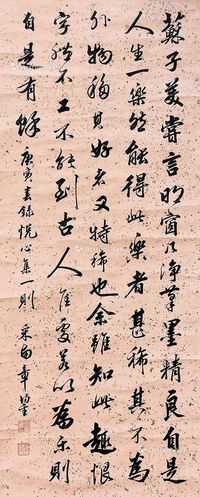 蘇子美嘗言明窗几淨筆墨精良自是
人生一樂然能得此樂者甚稀其不為
外物移其好者又特稀也余雖知此趣恨
字體不工不能到古人佳處若以為樂則
自是有餘 庚寅春錄悅心集一則 采南章鋆